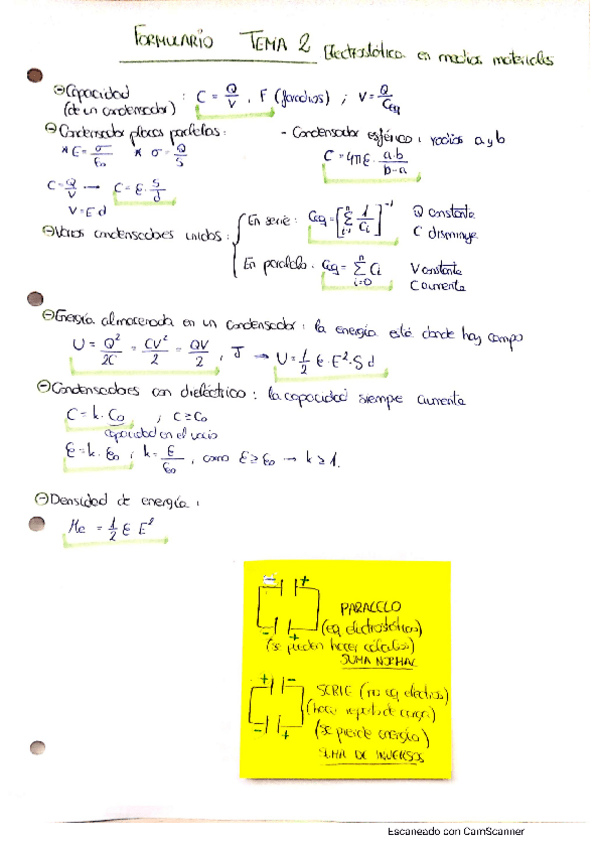 FORMULARIO TEMA 2 Electrostática en medios materiales
⊖Capacidad : C = Q/V , F (faradios) ; V = Q/Ceq
(de un condensador)
⊖Condensador placas paralelas: - Condensador esférico: radios a y b
* E = σ/ε₀ * σ = Q/S C = 4πε · a·b/b-a
C = Q/V → C = ε · S/d
V = E d
⊖Varios condensadores unidos: En serie: Ceq = [Σ i=1 n 1/Ci]⁻¹ Q constante
C disminuye
En paralelo: Ceq = Σ i=0 n Ci V constante
C aumenta
⊖Energía almacenada en un condensador: la energía está donde hay campo
U = Q²/2C = CV²/2 = QV/2 , J → U = 1/2 ε · E² · S d
⊖Condensadores con dieléctrico: la capacidad siempre aumenta
C = k · C₀ ; C ≥ C₀
capacidad en el vacío
ε = k · ε₀ ; k = ε/ε₀ , como ε ≥ ε₀ → k ≥ 1.
⊖Densidad de energía:
= 1/2 ε E²
- +
PARALELO
(eq electrostático)
- +
(se pueden hacer cálculos)
SUMA NORMAL
+ -
SERIE (no eq electros)
(hacer reparto de cargas)
- +
(se pierde energía)
SUMA DE INVERSOS
Escaneado con CamScanner